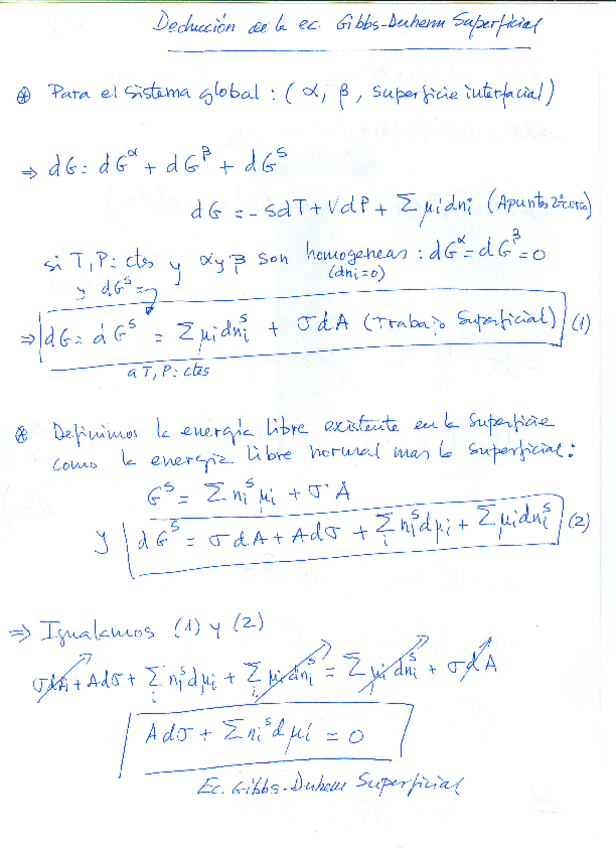 Deducción de la ec. Gibbs-Duhem Superficial
⊛ Para el sistema global : ( α, β, superficie interfacial)
⇒ dG = dG^α + dG^β + dG^S
dG = -SdT + VdP + Σ μi dni (Apuntes 2º curso)
si T, P: ctes y α y β son homogeneas : dG^α = dG^β = 0
(dni = 0)
y dG^S =
⇒ dG = dG^S = Σ μi dni^S + σ dA (Trabajo Superficial) (1)
a T, P: ctes
⊛ Definimos la energía libre existente en la superficie
como la energía libre normal mas la superficial :
G^S = Σ ni^S μi + σ · A
y dG^S = σ dA + A dσ + Σi ni^S dμi + Σ μi dni^S (2)
⇒ Igualamos (1) y (2)
σdA + Adσ + Σi ni^S dμi + Σi μi dni^S = Σi μi dni^S + σ dA
A dσ + Σ ni^S dμi = 0
Ec. Gibbs-Duhem Superficial